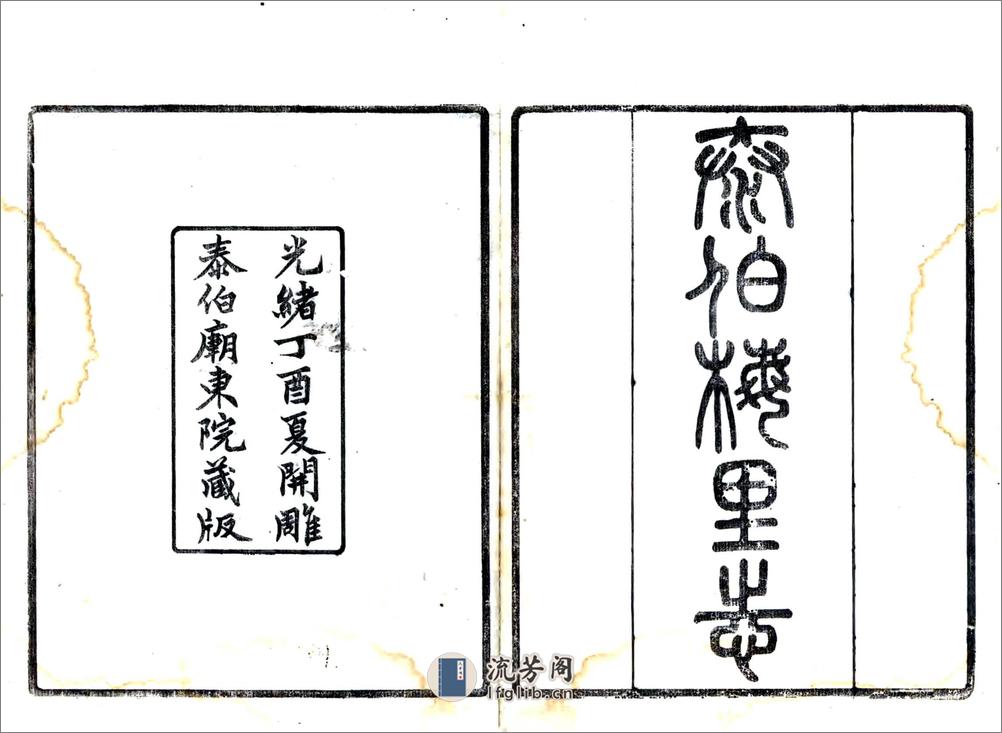 泰伯梅里志
光緒丁酉夏開雕
泰伯廟東院藏版
流芳阁
lfglib.cn